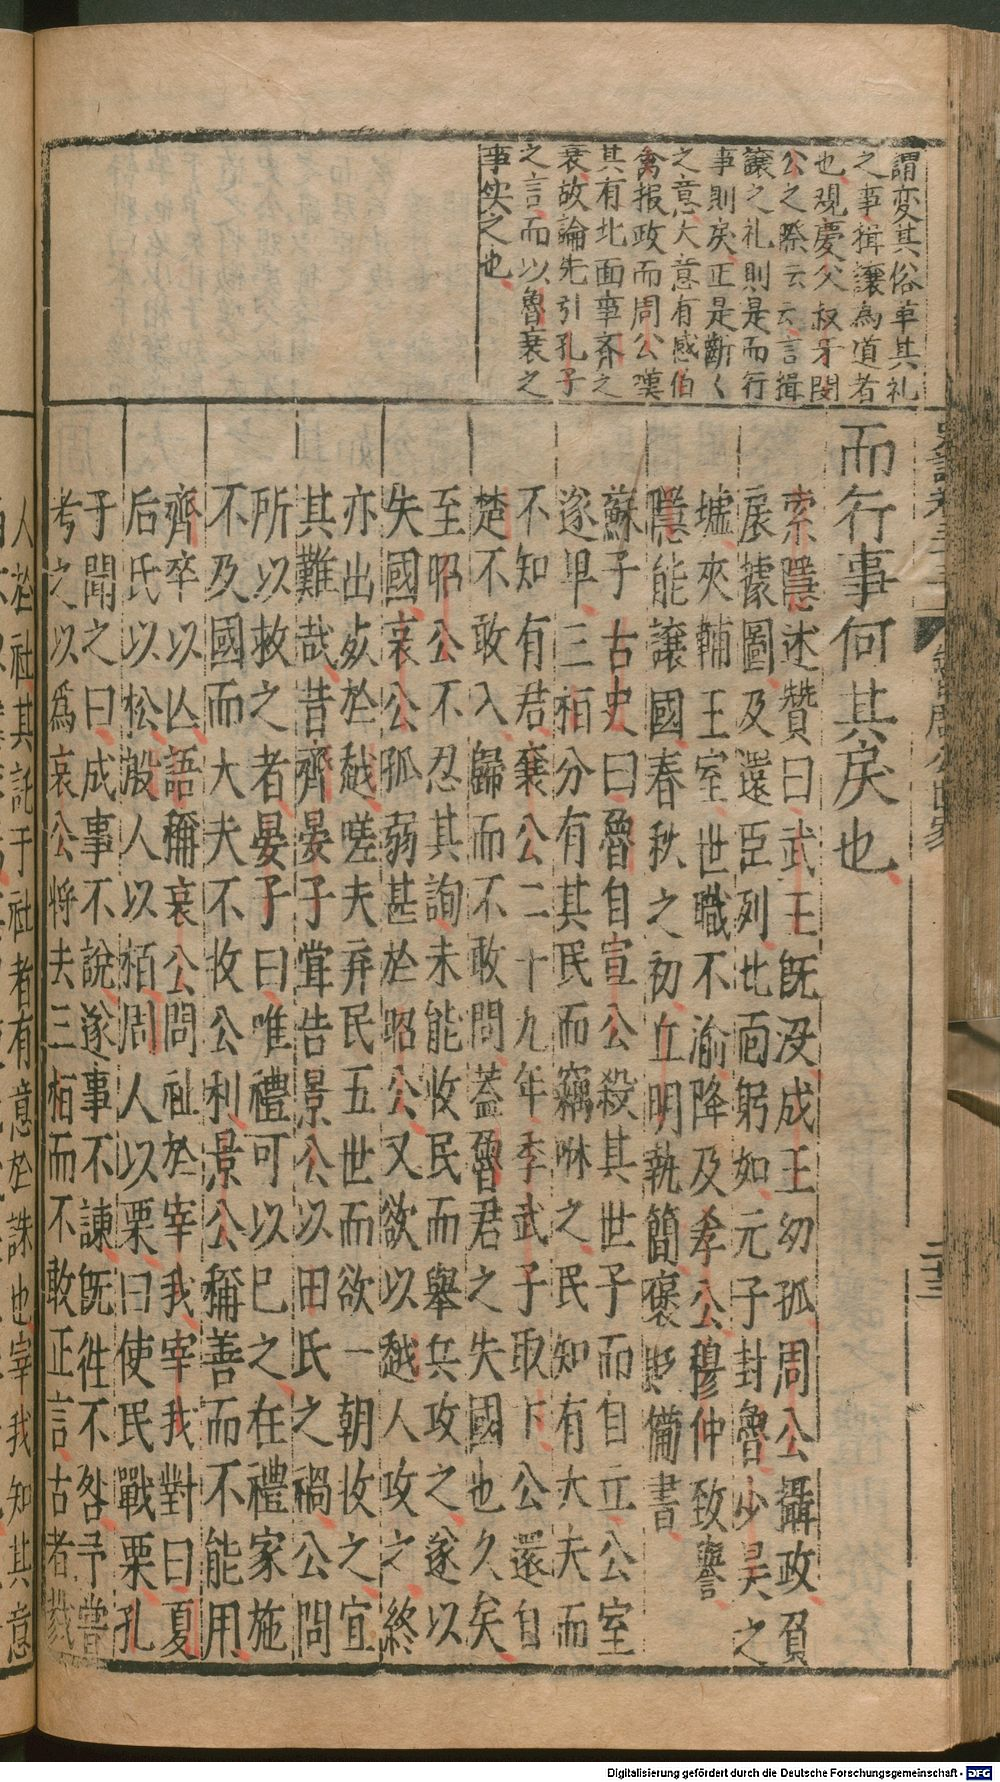 謂変其俗革其礼
之事揖讓為道者
也观慶父叔牙閔
公之際云云言揖
讓之礼則是而行
事則戾正是斷〱
之意大意有感伯
禽报政而周公嘆
其有北面事斉之
衰故論先引孔子
之言而以魯衰之
事实之也
而行事何其戾也
索隱述贊曰武王旣没成王幼孤周公攝政負
扆據圖及還臣列北面躬如元子封魯少昊之
墟夾輔王室世職不渝降及孝公穆仲致譽
隱能讓國春秋之初丘明執簡褒貶備書
蘇子古史曰魯自宣公殺其世子而自立公室
遂卑三桓分有其民而竊咻之民知有大夫而
不知有君襄公二十九年季武子取卞公還自
楚不敢入歸而不敢問蓋魯君之失國也久矣
至昭公不忍其詢未能收民而舉兵攻之遂以
失國哀公孤弱甚於昭公又欲以越人攻之終
亦出𡚒於越嗟夫弃民五世而欲一朝收之宜
其難哉昔齊晏子甞告景公以田氏之禍公問
所以救之者晏子曰唯禮可以已之在禮家施
不及國而大夫不收公利景公稱善而不能用
齊卒以亾語稱哀公問社於宰我宰我對曰夏
后氏以松殷人以栢周人以栗曰使民戰栗孔
子聞之曰成事不說遂事不諫旣徃不咎予嘗
考之以爲哀公將去三桓而不敢正言古者戮
人於社其託于社者有意於誅也宰我知其意
史記卷三十三
魯周公世家
二十三
Digitalisierung gefördert durch die Deutsche Forschungsgemeinschaft - DFG